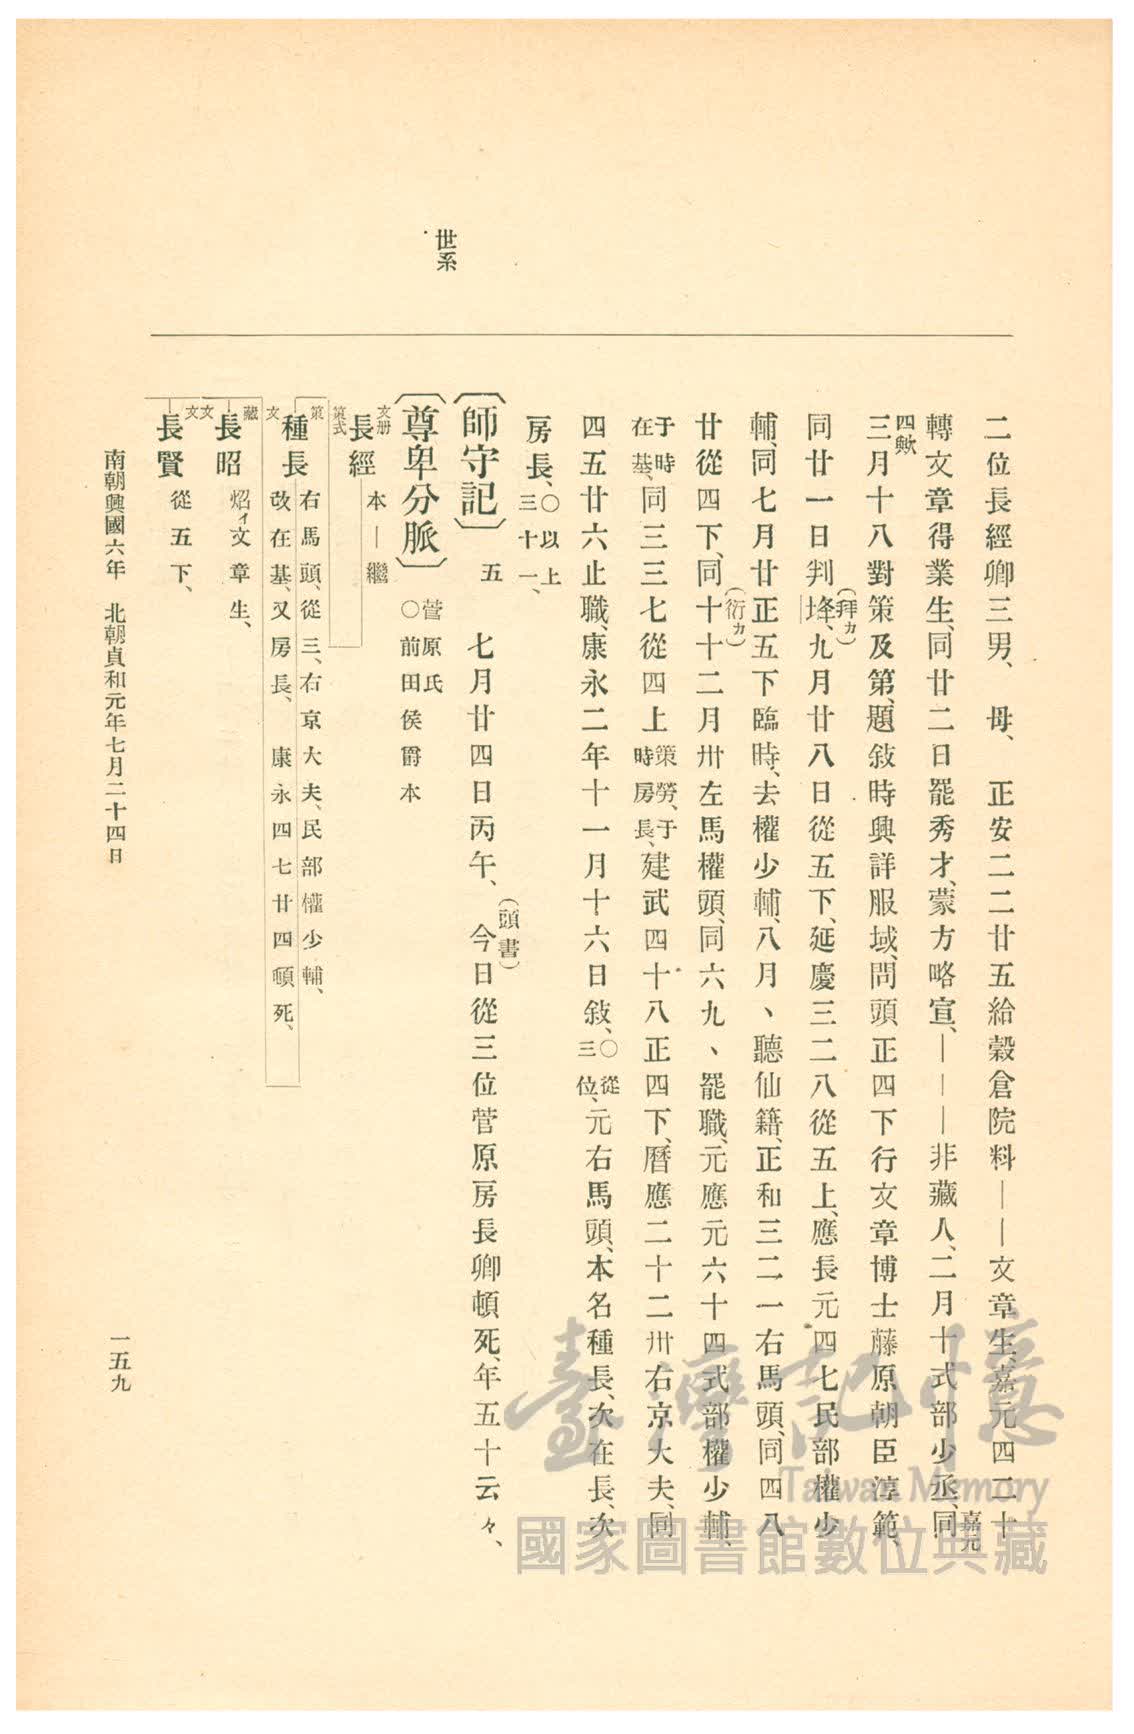 世系
二位長經卿三男、　母、　正安二二廿五給穀倉院料――文章生、嘉元四二十
轉文章得業生、同廿二日罷秀才、蒙方略宣、―――非藏人、二月十式部少丞、同(嘉元四歟)
三月十八對策及第、題敍時興詳服域、問頭正四下行文章博士藤原朝臣淳範、
同廿一日判墏(拜カ)、九月廿八日從五下、延慶三二八從五上、應長元四七民部權少
輔、同七月廿正五下臨時、去權少輔、八月、聽仙籍、正和三二一右馬頭、同四八
廿從四下、同十十(衍カ)二月卅左馬權頭、同六九、罷職、元應元六十四式部權少輔、
于時在基、同三三七從四上策勞、于時房長、建武四十八正四下、曆應二十二卅右京大夫、同
四五廿六止職、康永二年十一月十六日敍、○從三位、元右馬頭、本名種長、次在長、次
房長、○以上三十一、
〔師守記〕　五　七月廿四日丙午、(頭書)今日從三位菅原房長卿頓死、年五十云々、
〔尊卑分脈〕　菅原氏　○前田侯爵本
文册　策式　長經　本―繼
策　文　種長　右馬頭、從三、右京大夫、民部權少輔、改在基、又房長、　康永四七廿四頓死、
藏　文　長昭　炤イ　文章生、
文　長賢　從五下、
南朝興國六年　北朝貞和元年七月二十四日
一五九
臺灣記憶
Taiwan Memory
國家圖書館數位典藏